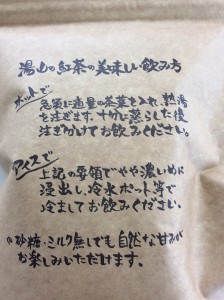 湯山の紅茶の美味しい飲み方
ホットで
急須に適量の茶葉を入れ、熱湯
を注ぎます。十分に蒸らした後
注ぎ分けてお飲みください。
アイスで
上記の要領でやや濃いめに
浸出し、冷水ポット等で
冷ましてお飲みください。
砂糖・ミルク無しでも自然な甘みが
お楽しみいただけます。